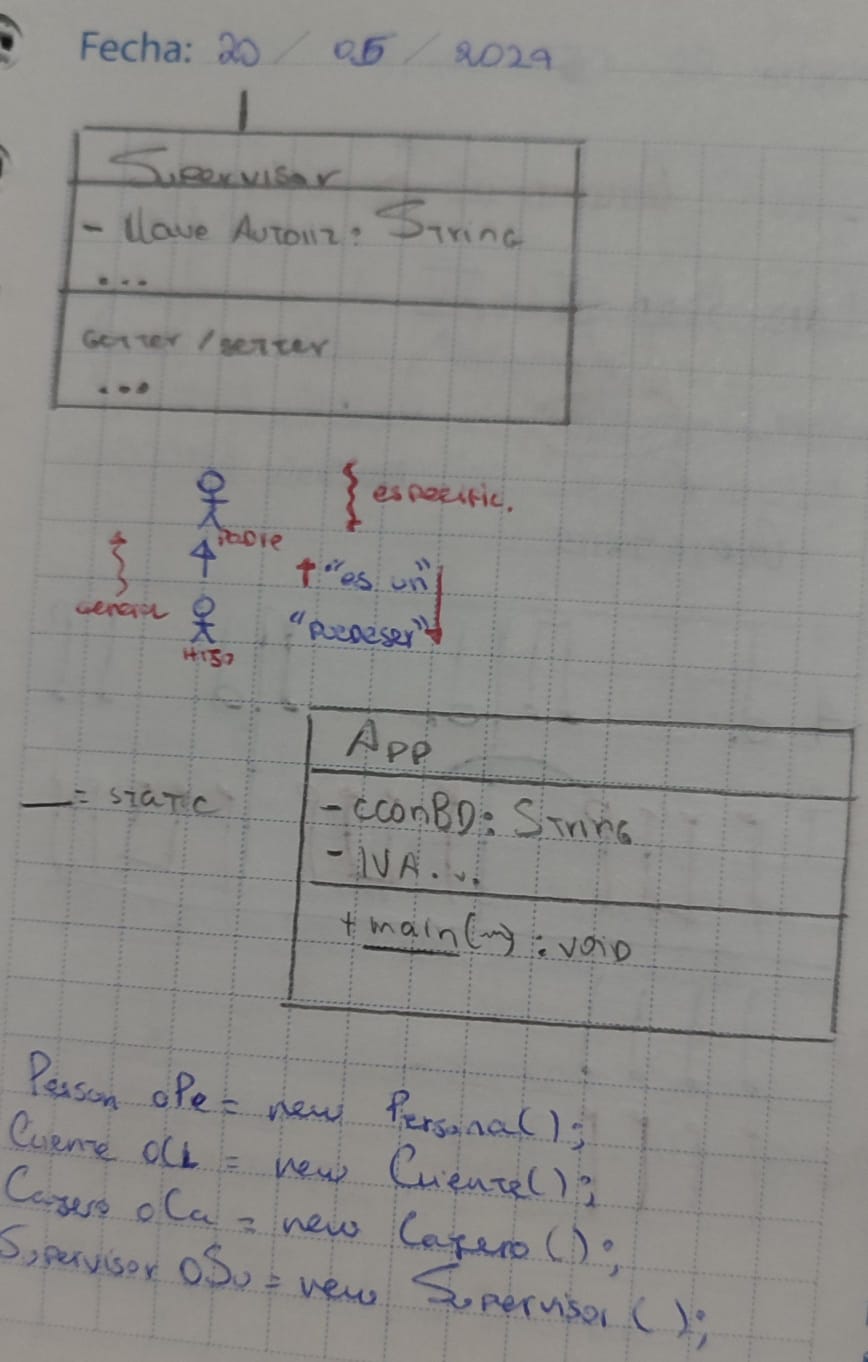 Fecha: 20 / 05 / 2024
Supervisor
- llave Autoriz: String
...
Getter / setter
...
especific.
Padre
↑ "es un"
General
"puedeser"
Hijo
App
__ = static
- cconBD: String
- IVA...
+ main(~) : void
Person oPe = new Persona();
Cliente oCL = new Cliente();
Cajero oCa = new Cajero();
Supervisor oSu = new Supervisor();